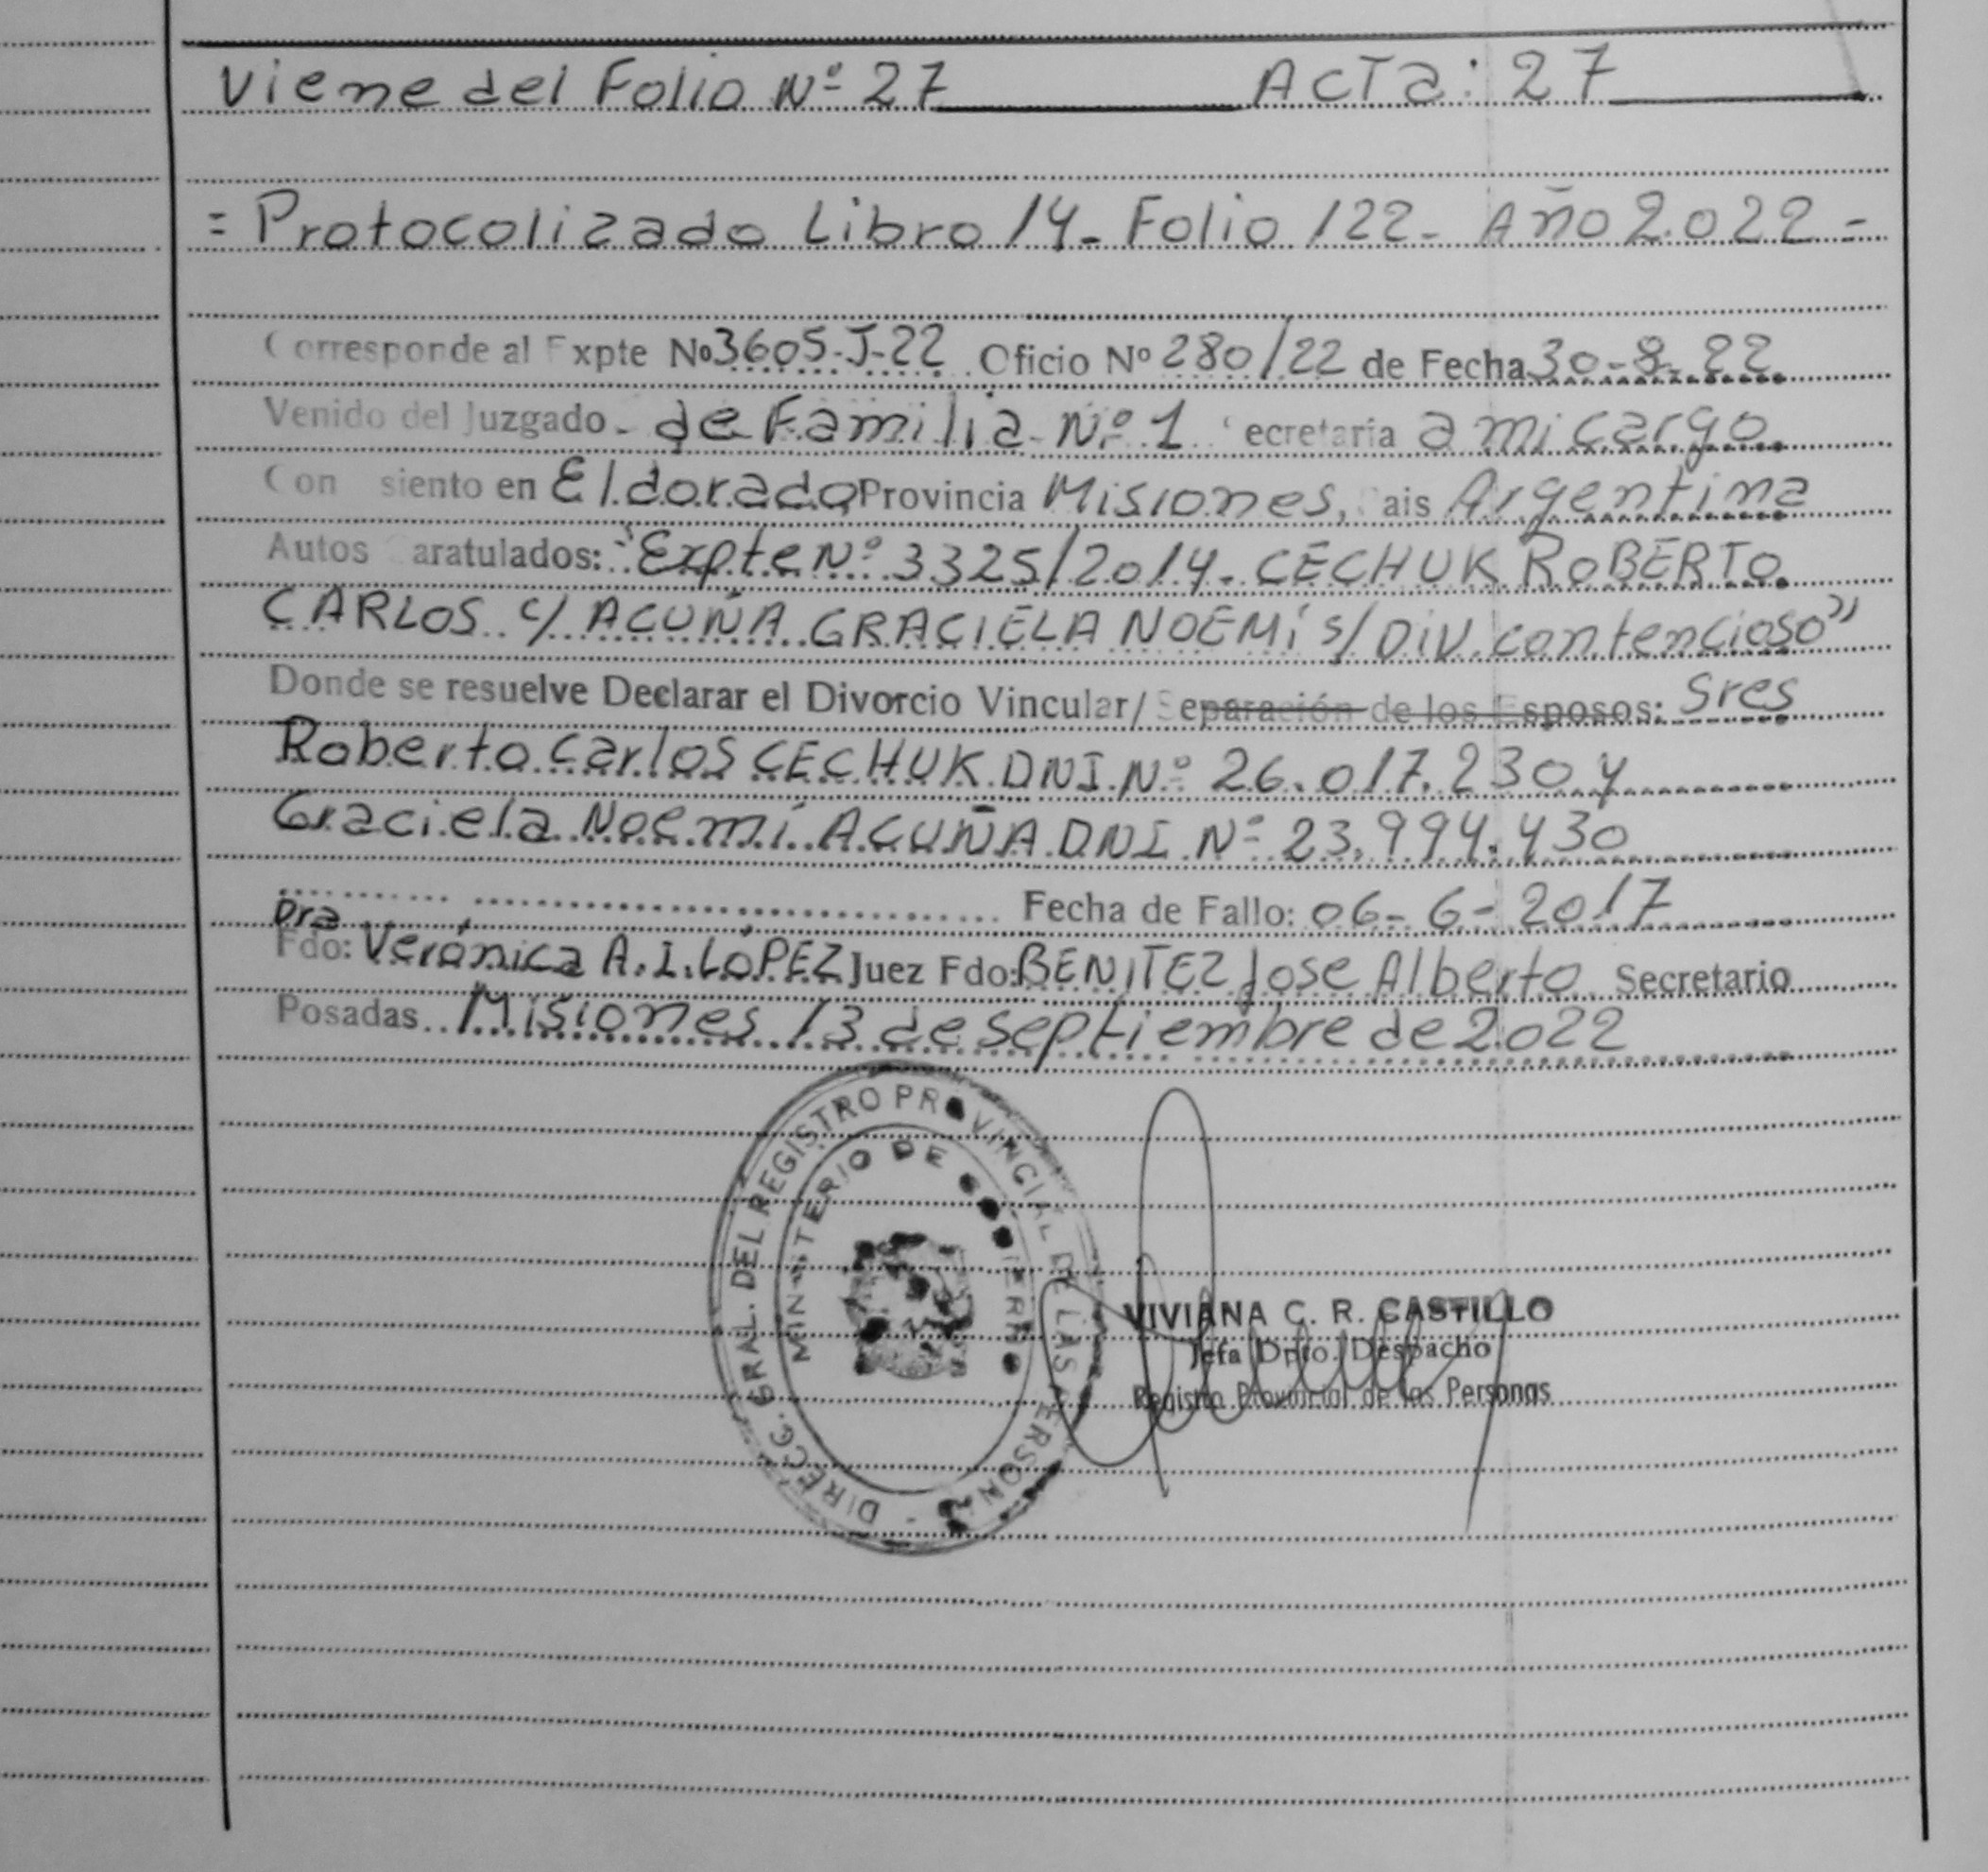 Viene del Folio Nº 27 ACTa: 27
= Protocolizado Libro 14- Folio 122- Año 2.022 -
Corresponde al Expte Nº 3605-J-22 Oficio Nº 280/22 de Fecha 30-8-22
Venido del Juzgado - de Familia Nº 1 Secretaria a mi cargo
Con siento en Eldorado Provincia Misiones, Pais Argentina
Autos Caratulados: "Expte Nº 3325/2014- CECHUK ROBERTO
CARLOS c/ ACUÑA GRACIELA NOEMÍ s/ DIV. contencioso"
Donde se resuelve Declarar el Divorcio Vincular/ Separación de los Esposos: Sres
Roberto Carlos CECHUK DNI Nº 26.017.230 y
Graciela Noemí ACUÑA DNI Nº 23.994.430
Fecha de Fallo: 06-6-2017
Dra
Fdo: Verónica A.I. LÓPEZ Juez Fdo: BENITEZ Jose Alberto Secretario
Posadas Misiones 13 de septiembre de 2022
DIRECC. GRAL. DEL REGISTRO PROVINCIAL DE LAS PERSONAS
MINISTERIO DE
VIVIANA C. R. CASTILLO
Jefa Dpto. Despacho
Registro Provincial de las Personas